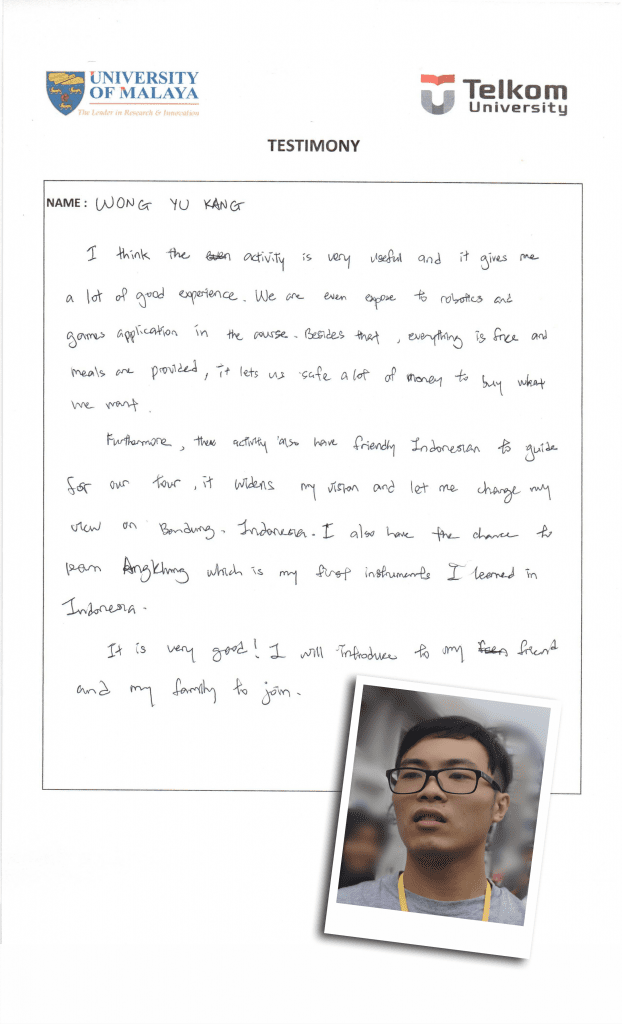 UNIVERSITY
OF MALAYA
The Leader in Research & Innovation
Telkom
University
TESTIMONY
NAME : WONG YU KANG
I think the activity is very useful and it gives me
a lot of good experience. We are even expose to robotics and
games application in the course. Besides that, everything is free and
meals are provided, it lets us safe a lot of money to buy what
we want.
Furthermore, these activity also have friendly Indonesian to guide
for our tour, it widens my vision and let me change my
view on Bandung, Indonesia. I also have the chance to
learn Angklung which is my first instruments I learned in
Indonesia.
It is very good! I will introduce to my friend
and my family to join.